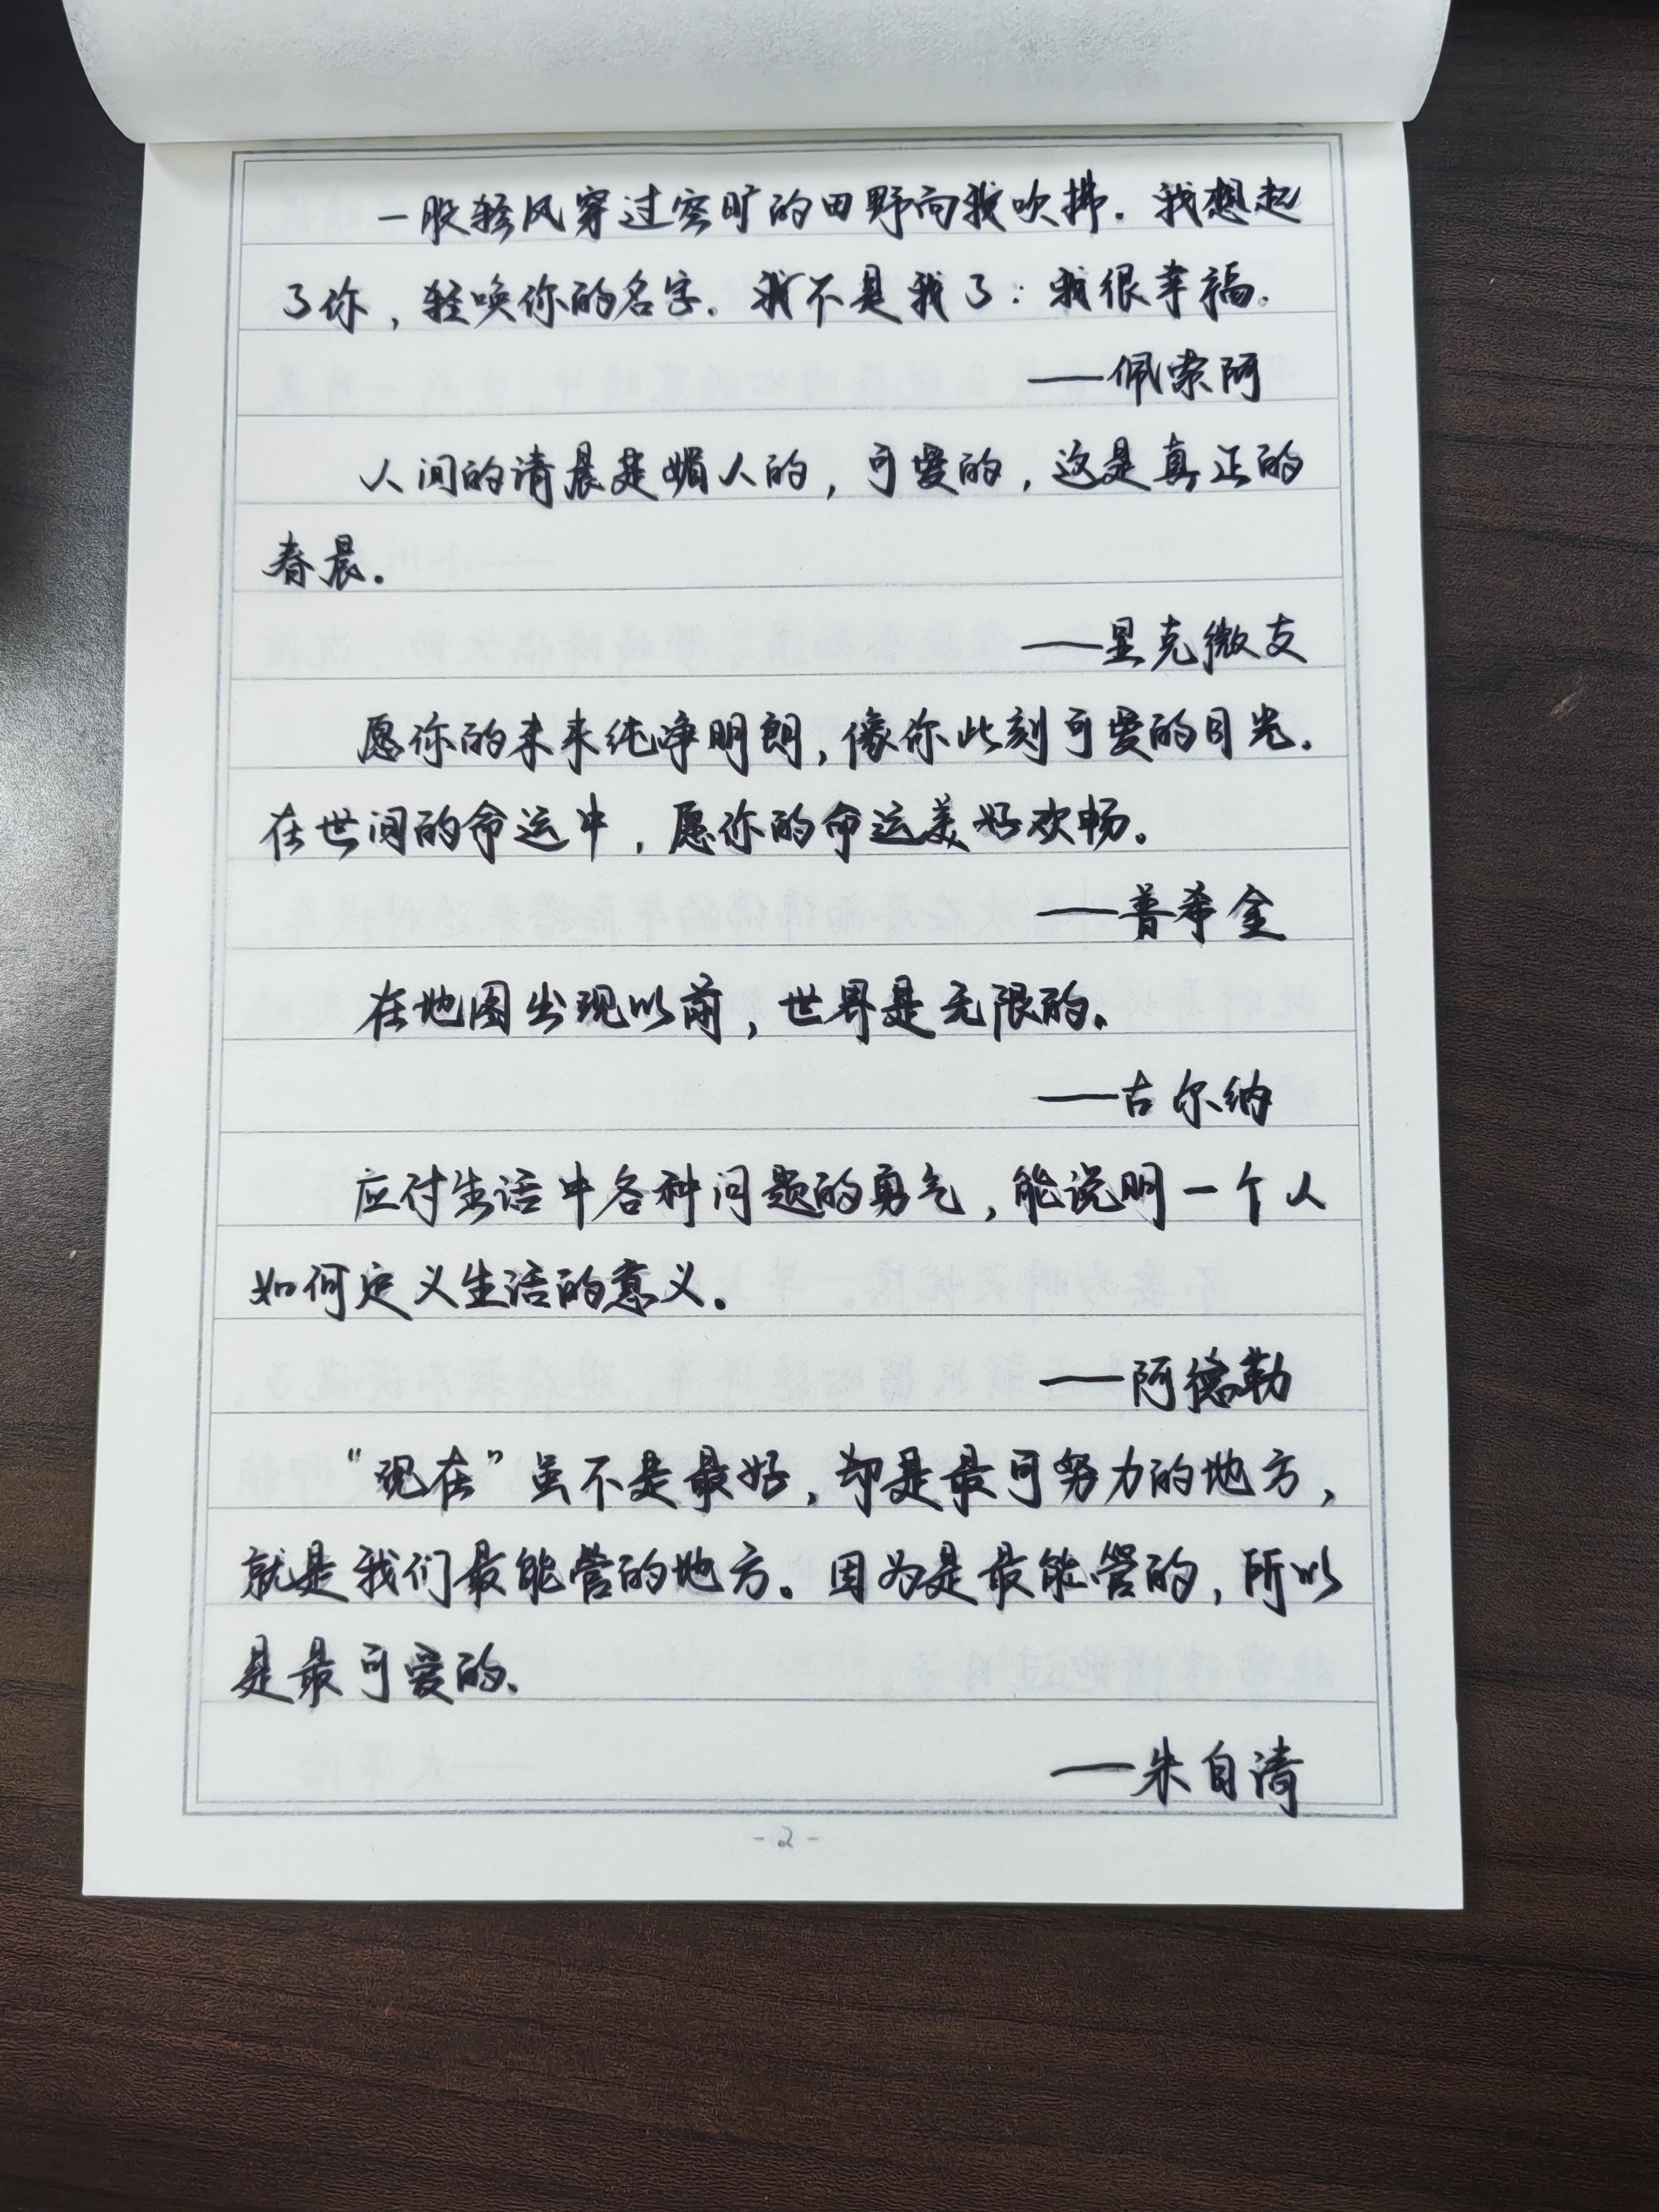 一股轻风穿过空旷的田野向我吹拂。我想起
了你，轻唤你的名字。我不是我了：我很幸福。
——佩索阿
人间的清晨是媚人的，可爱的，这是真正的
春晨。
——显克微支
愿你的未来纯净明朗，像你此刻可爱的目光。
在世间的命运中，愿你的命运美好欢畅。
——普希金
在地图出现以前，世界是无限的。
——古尔纳
应付生活中各种问题的勇气，能说明一个人
如何定义生活的意义。
——阿德勒
“现在”虽不是最好，却是最可努力的地方，
就是我们最能管的地方。因为是最能管的，所以
是最可爱的。
——朱自清
- 2 -